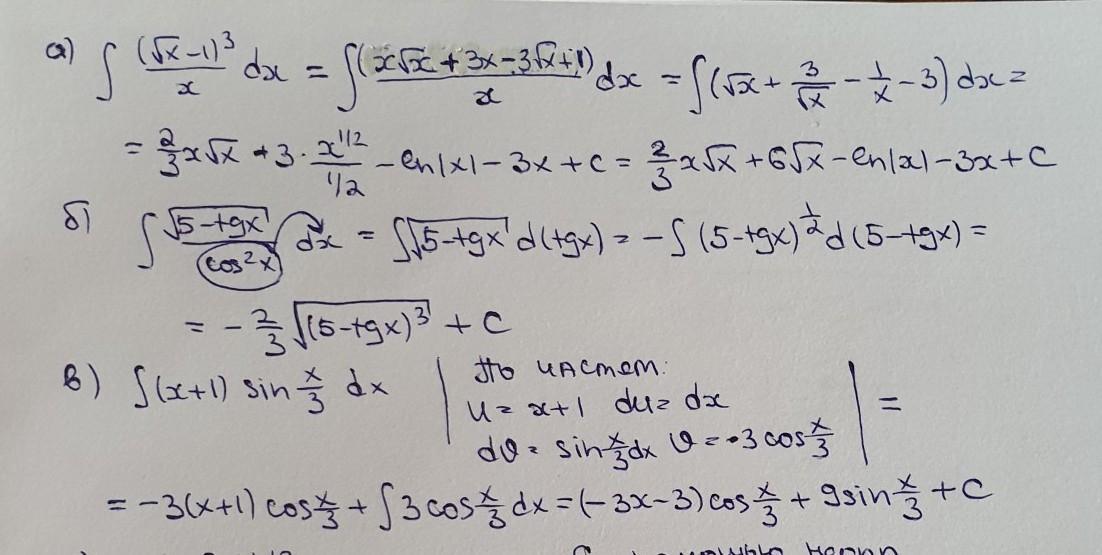 а) ∫ (√x −1)³/x dx = ∫ (x√x + 3x − 3√x + 1)/x dx = ∫(√x + 3/√x − 1/x − 3) dx =
= 2/3 x√x + 3 · x^(1/2)/(1/2) − ln|x| − 3x + c = 2/3 x√x + 6√x − ln|x| − 3x + C
б) ∫ √(5−tgx)/cos²x dx = ∫√(5−tgx) d(tgx) = −∫ (5−tgx)^(1/2) d(5−tgx) =
= − 2/3 √((5−tgx)³) + C
в) ∫(x+1) sin x/3 dx | По частям: u = x+1 du = dx dv = sin x/3 dx v = −3 cos x/3 | =
= −3(x+1) cos x/3 + ∫ 3 cos x/3 dx = (−3x−3) cos x/3 + 9 sin x/3 + C